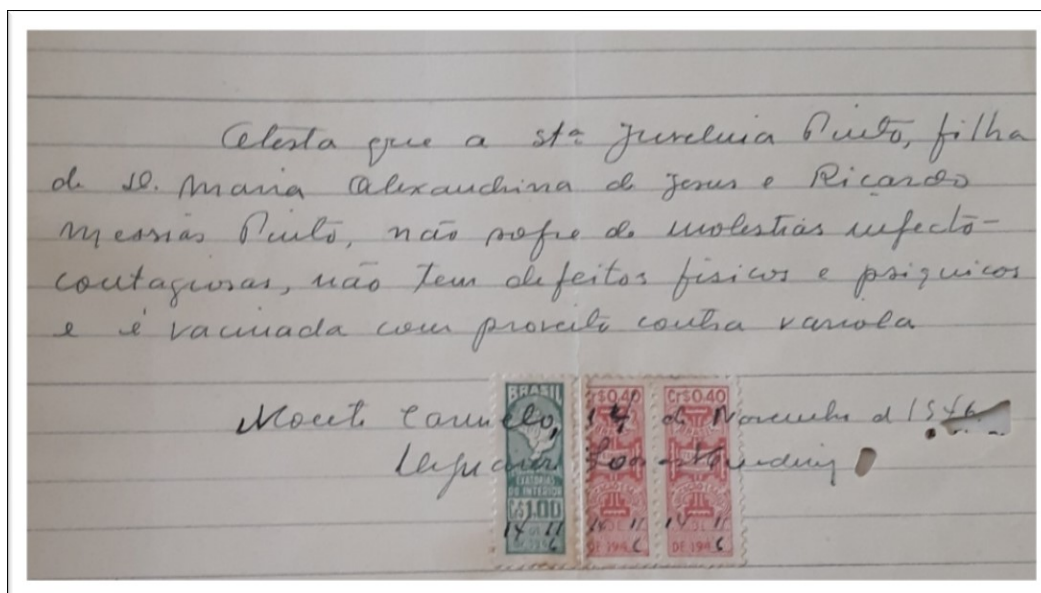 Atesta que a sta Juvelina Pinto, filha
de D. Maria Alexandrina de Jesus e Ricardo
Messias Pinto, não sofre de molestias infecto-
contagiosas, não tem defeitos fisicos e psiquicos
e é vacinada com proveito contra variola
Monte Carmelo, 14 de Novembro d 1946
BRASIL
EXATORIAS
DO INTERIOR
Cr$1,00
14 11
6
Cr$0,40
14 11
DE 1946
Cr$0,40
14 DE 11
DE 1946